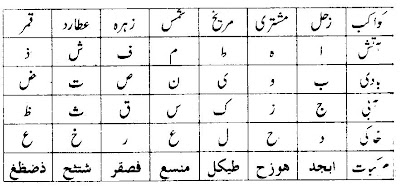 کواکب زحل مشتری مریخ شمس زہرہ عطارد قمر
آتش ا ہ ط م ف ش ذ
بادی ب و ی ن ص ت ض
آبی ج ز ک س ق ث ظ
خاکی د ح ل ع ر خ غ
مرکبات ابجد ھوزح طیکل منسع فصقر شتثخ ذضظغ